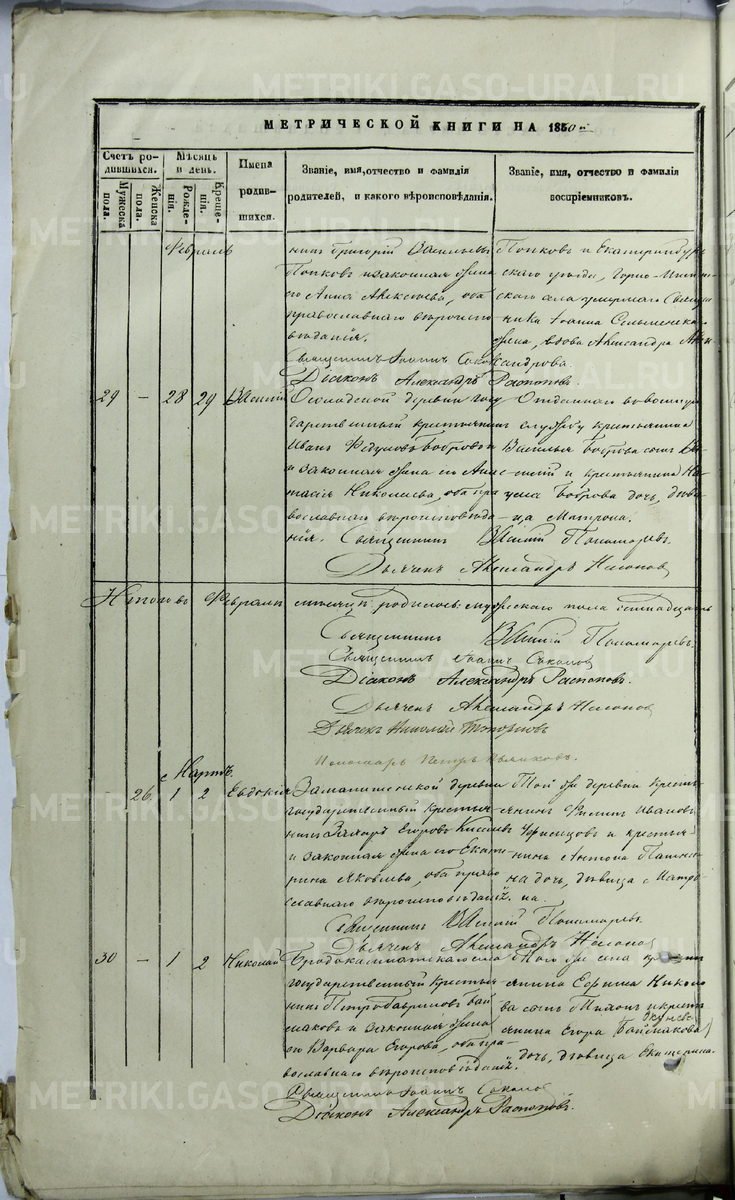 МЕТРИЧЕСКОЙ КНИГИ НА 1850й
Счетъ родившихся.
Мужеска пола.
Женска пола.
Мѣсяцъ и день.
Рожденія.
Крещенія.
Имена родившихся.
Званіе, имя, отчество и фамилія родителей, и какого вѣроисповѣданія.
Званіе, имя, отчество и фамилія воспріемниковъ.
Февраль
нинъ Григорій Васильевъ
Попковъ и законная жена
его Анна Алексѣева, оба
православнаго вѣроиспо-
вѣданія.
Попковъ и Екатеринбург-
скаго уѣзда,
скаго села умершаго Священ-
ника Іоанна
жена, вдова Александра
Священникъ Іоаннъ Соколовъ
Діаконъ Александръ Распоповъ.
29 — 28 29 Василій
деревни госу-
дарственный крестьянинъ
Иванъ Бобровъ
и законная жена его Анас-
тасія Николаева, оба пра-
вославнаго вѣроисповѣда-
нія.
Отданнаго въ военную
службу крестьянина
Василья Боброва сынъ
и крестьянина
Боброва дочь, дѣви-
ца Матрона.
Священникъ Василій Пономаревъ.
Дьячекъ Александръ Насоновъ
Итого въ Февралѣ мѣсяцѣ родилось: мужескаго пола семнадцать
Священникъ Василій Пономаревъ.
Священникъ Іоаннъ Соколовъ
Діаконъ Александръ Распоповъ.
Дьячекъ Александръ Насоновъ
Дьячекъ Николай Топорковъ
Пономарь Петръ
Мартъ.
26. 1 2 Евдокія
деревни
государственный крестья-
нинъ Захаръ Егоровъ
и законная жена его Екате-
рина Яковлева, оба право-
славнаго вѣроисповѣданія.
Той же деревни кресть-
янинъ Филиппъ Ивановъ
и крестья-
нина Антона
на дочь, дѣвица Матро-
на.
Священникъ Василій Пономаревъ.
Дьячекъ Александръ Насоновъ
30 — 1 2 Николай
Бродокалмакскаго села
государственный крестья-
нинъ Петръ Гавриловъ Бай-
наковъ и законная жена
его Варвара Егорова, оба пра-
вославнаго вѣроисповѣданія.
Того же села кресть-
янина Ефима Никоно-
ва сынъ и кресть-
янина Егора
дочь, дѣвица Екатерина.
Священникъ Іоаннъ Соколовъ
Діаконъ Александръ Распоповъ.
METRIKI.GASO-URAL.RU